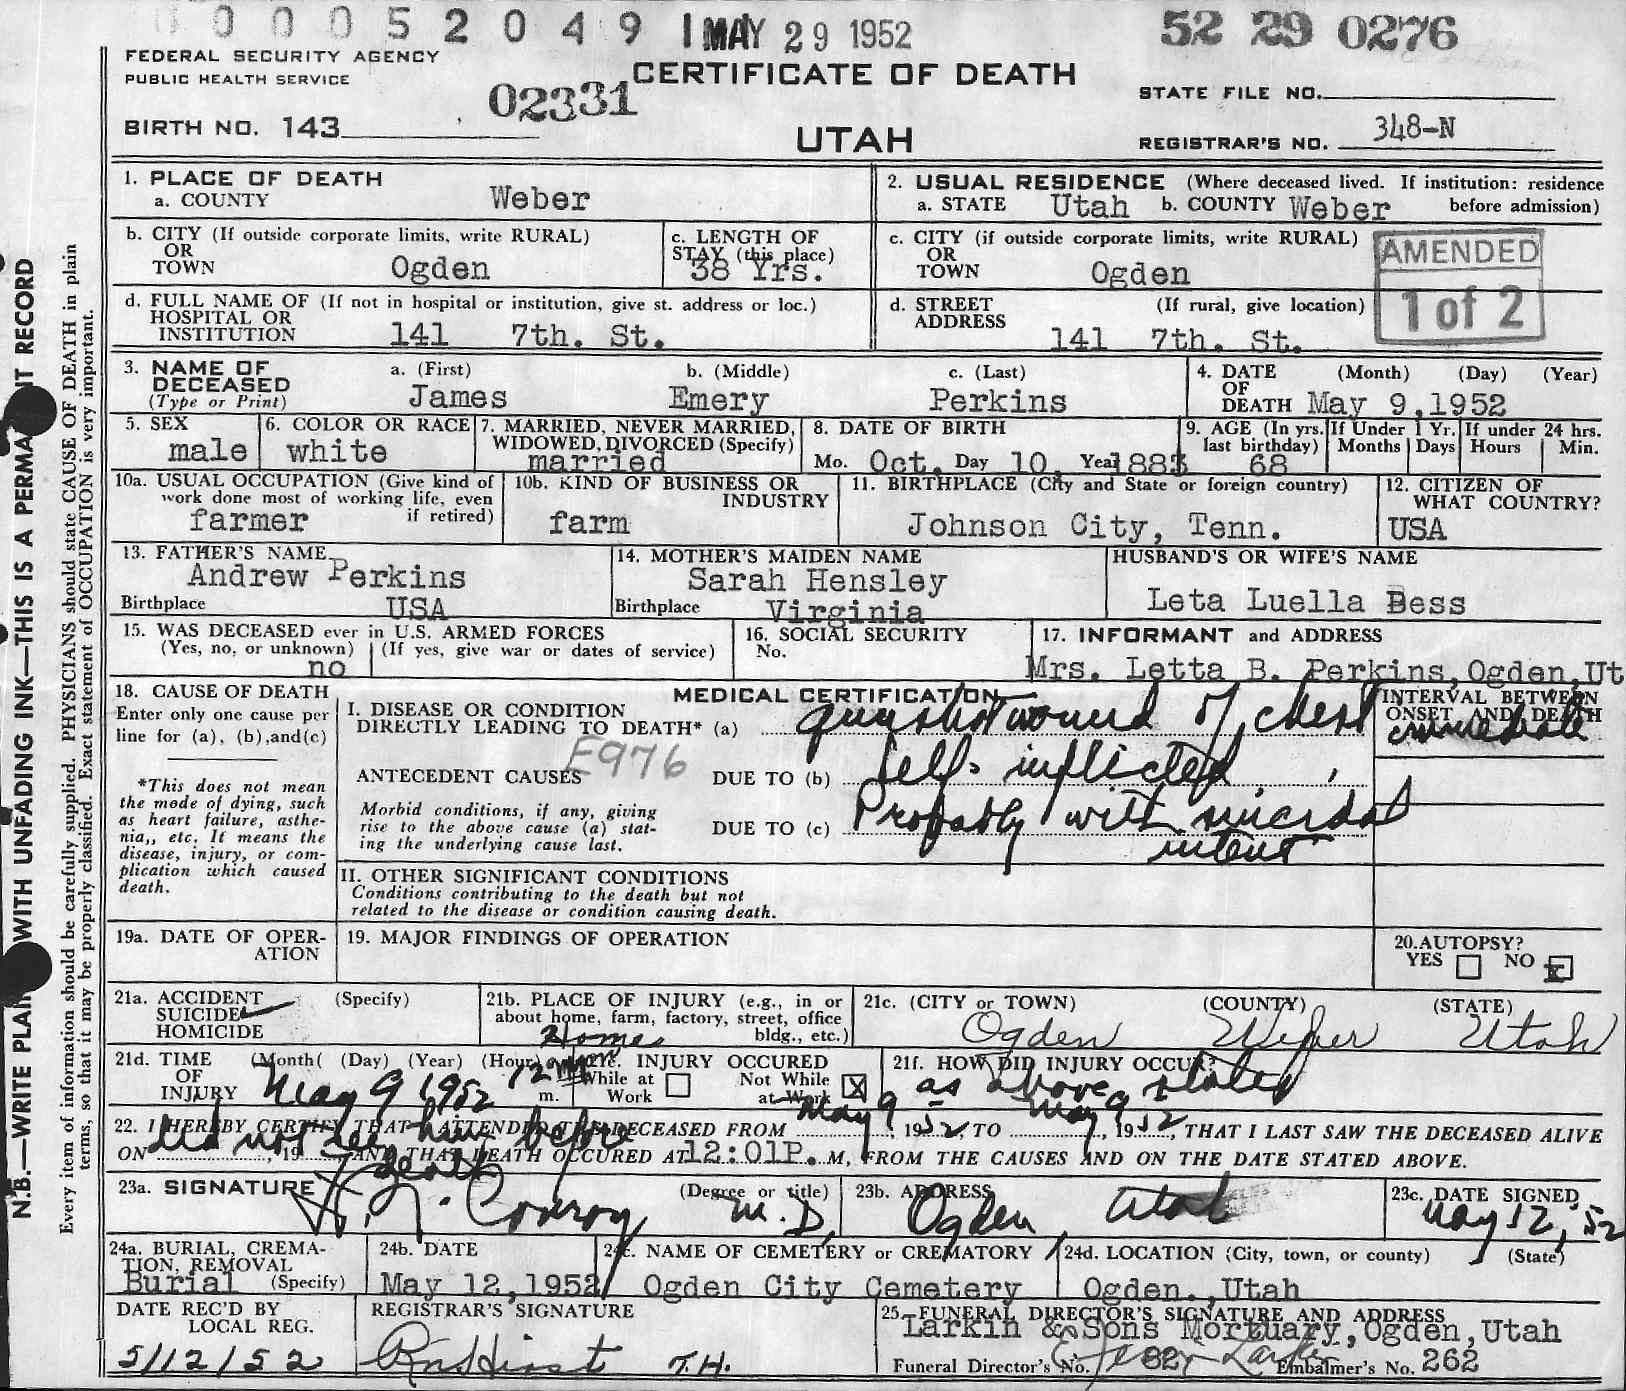 00052049 MAY 29 1952 52 29 0276
FEDERAL SECURITY AGENCY
PUBLIC HEALTH SERVICE
CERTIFICATE OF DEATH
02331
STATE FILE NO.
BIRTH NO. 143
UTAH
REGISTRAR'S NO. 348-N
N.B.—WRITE PLAIN WITH UNFADING INK—THIS IS A PERMA T RECORD
Every item of information should be carefully supplied. PHYSICIANS should state CAUSE OF DEATH in plain
terms, so that it may be properly classified. Exact statement of OCCUPATION is very important.
1. PLACE OF DEATH
a. COUNTY Weber
2. USUAL RESIDENCE (Where deceased lived. If institution: residence
a. STATE Utah b. COUNTY Weber before admission)
b. CITY (If outside corporate limits, write RURAL)
OR
TOWN Ogden
c. LENGTH OF
STAY (this place)
38 Yrs.
c. CITY (if outside corporate limits, write RURAL)
OR
TOWN Ogden
AMENDED
1 of 2
d. FULL NAME OF (If not in hospital or institution, give st. address or loc.)
HOSPITAL OR
INSTITUTION 141 7th. St.
d. STREET (If rural, give location)
ADDRESS
141 7th. St.
3. NAME OF
DECEASED
(Type or Print)
a. (First) b. (Middle) c. (Last)
James Emery Perkins
4. DATE (Month) (Day) (Year)
OF
DEATH May 9,1952
5. SEX
male
6. COLOR OR RACE
white
7. MARRIED, NEVER MARRIED,
WIDOWED, DIVORCED (Specify)
married
8. DATE OF BIRTH
Mo. Oct. Day 10, Year 1883
9. AGE (In yrs.
last birthday)
68
If Under 1 Yr.
Months Days
If under 24 hrs.
Hours Min.
10a. USUAL OCCUPATION (Give kind of
work done most of working life, even
if retired)
farmer
10b. KIND OF BUSINESS OR
INDUSTRY
farm
11. BIRTHPLACE (City and State or foreign country)
Johnson City, Tenn.
12. CITIZEN OF
WHAT COUNTRY?
USA
13. FATHER'S NAME
Andrew Perkins
Birthplace USA
14. MOTHER'S MAIDEN NAME
Sarah Hensley
Birthplace Virginia
HUSBAND'S OR WIFE'S NAME
Leta Luella Bess
15. WAS DECEASED ever in U.S. ARMED FORCES
(Yes, no, or unknown) (If yes, give war or dates of service)
no
16. SOCIAL SECURITY
No.
17. INFORMANT and ADDRESS
Mrs. Letta B. Perkins,Ogden,Ut
18. CAUSE OF DEATH
Enter only one cause per
line for (a), (b),and(c)
*This does not mean
the mode of dying, such
as heart failure, asthe-
nia,, etc. It means the
disease, injury, or com-
plication which caused
death.
MEDICAL CERTIFICATION
I. DISEASE OR CONDITION
DIRECTLY LEADING TO DEATH* (a) gunshot wound of chest
INTERVAL BETWEEN
ONSET AND DEATH
immediate
E976
ANTECEDENT CAUSES DUE TO (b) Self-inflicted
Morbid conditions, if any, giving
rise to the above cause (a) stat-
ing the underlying cause last.
DUE TO (c) Probably with suicidal
intent
II. OTHER SIGNIFICANT CONDITIONS
Conditions contributing to the death but not
related to the disease or condition causing death.
19a. DATE OF OPER-
ATION
19. MAJOR FINDINGS OF OPERATION
20. AUTOPSY?
YES NO x
21a. ACCIDENT (Specify)
SUICIDE ✓
HOMICIDE
21b. PLACE OF INJURY (e.g., in or
about home, farm, factory, street, office
bldg., etc.)
Home
21c. (CITY or TOWN) (COUNTY) (STATE)
Ogden Weber Utah
21d. TIME (Month( (Day) (Year) (Hour)
OF
INJURY May 9 1952 12 m.
21e. INJURY OCCURED
While at Work Not While at Work X
21f. HOW DID INJURY OCCUR?
as above stated
22. I HEREBY CERTIFY THAT I ATTENDED THE DECEASED FROM May 9, 1952, TO May 9, 1952, THAT I LAST SAW THE DECEASED ALIVE
Did not see him before
death
ON , 19 AND THAT DEATH OCCURED AT 12:01P. M, FROM THE CAUSES AND ON THE DATE STATED ABOVE.
23a. SIGNATURE (Degree or title)
Conroy M.D,
23b. ADDRESS
Ogden Utah
23c. DATE SIGNED
May 12, 52
24a. BURIAL, CREMA-
TION, REMOVAL
Burial (Specify)
24b. DATE
May 12,1952
24c. NAME OF CEMETERY or CREMATORY
Ogden City Cemetery
24d. LOCATION (City, town, or county) (State)
Ogden.,Utah
DATE REC'D BY
LOCAL REG.
5/12/52
REGISTRAR'S SIGNATURE
T.H.
25. FUNERAL DIRECTOR'S SIGNATURE AND ADDRESS
Larkin & Sons Mortuary,Ogden,Utah
Funeral Director's No. 82 Larkin Embalmer's No. 262